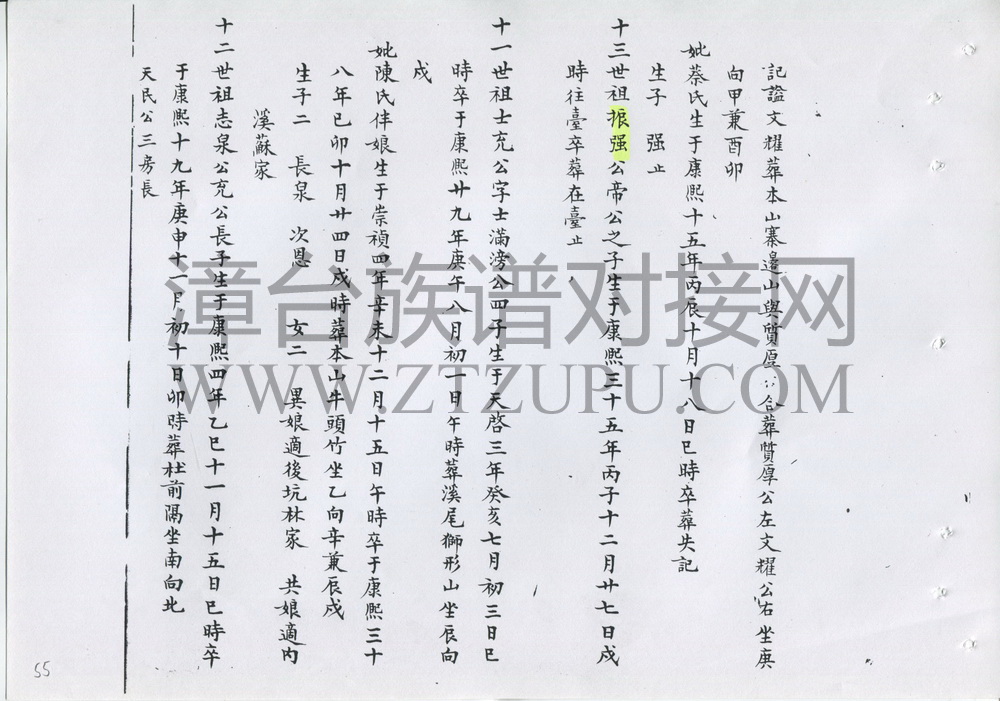 記謚文耀葬本山寨邊山與質厚公合葬質厚公左文耀公右坐庚
向甲兼酉卯
妣蔡氏生于康熙十五年丙辰十月十八日巳時卒葬失記
生子 强止
十三世祖振强公帝公之子生于康熙三十五年丙子十二月廿七日戍
時往臺卒葬在臺止
十一世祖士充公字士滿滂公四子生于天啓三年癸亥七月初三日巳
時卒于康熙廿九年庚午八月初一日午時葬溪尾獅形山坐辰向
戍
妣陳氏伴娘生于崇禎四年辛未十二月十五日午時卒于康熙三十
八年己卯十月廿四日戍時葬本山牛頭竹坐乙向辛兼辰戍
生子二 長泉 次恩 女二 異娘適後坑林家 共娘適內
溪蘇家
十二世祖志泉公充公長子生于康熙四年乙巳十一月十五日巳時卒
于康熙十九年庚申十一月初十日卯時葬社前隔坐南向北
天民公三房長
55
漳台族谱对接网
WWW.ZTZUPU.COM